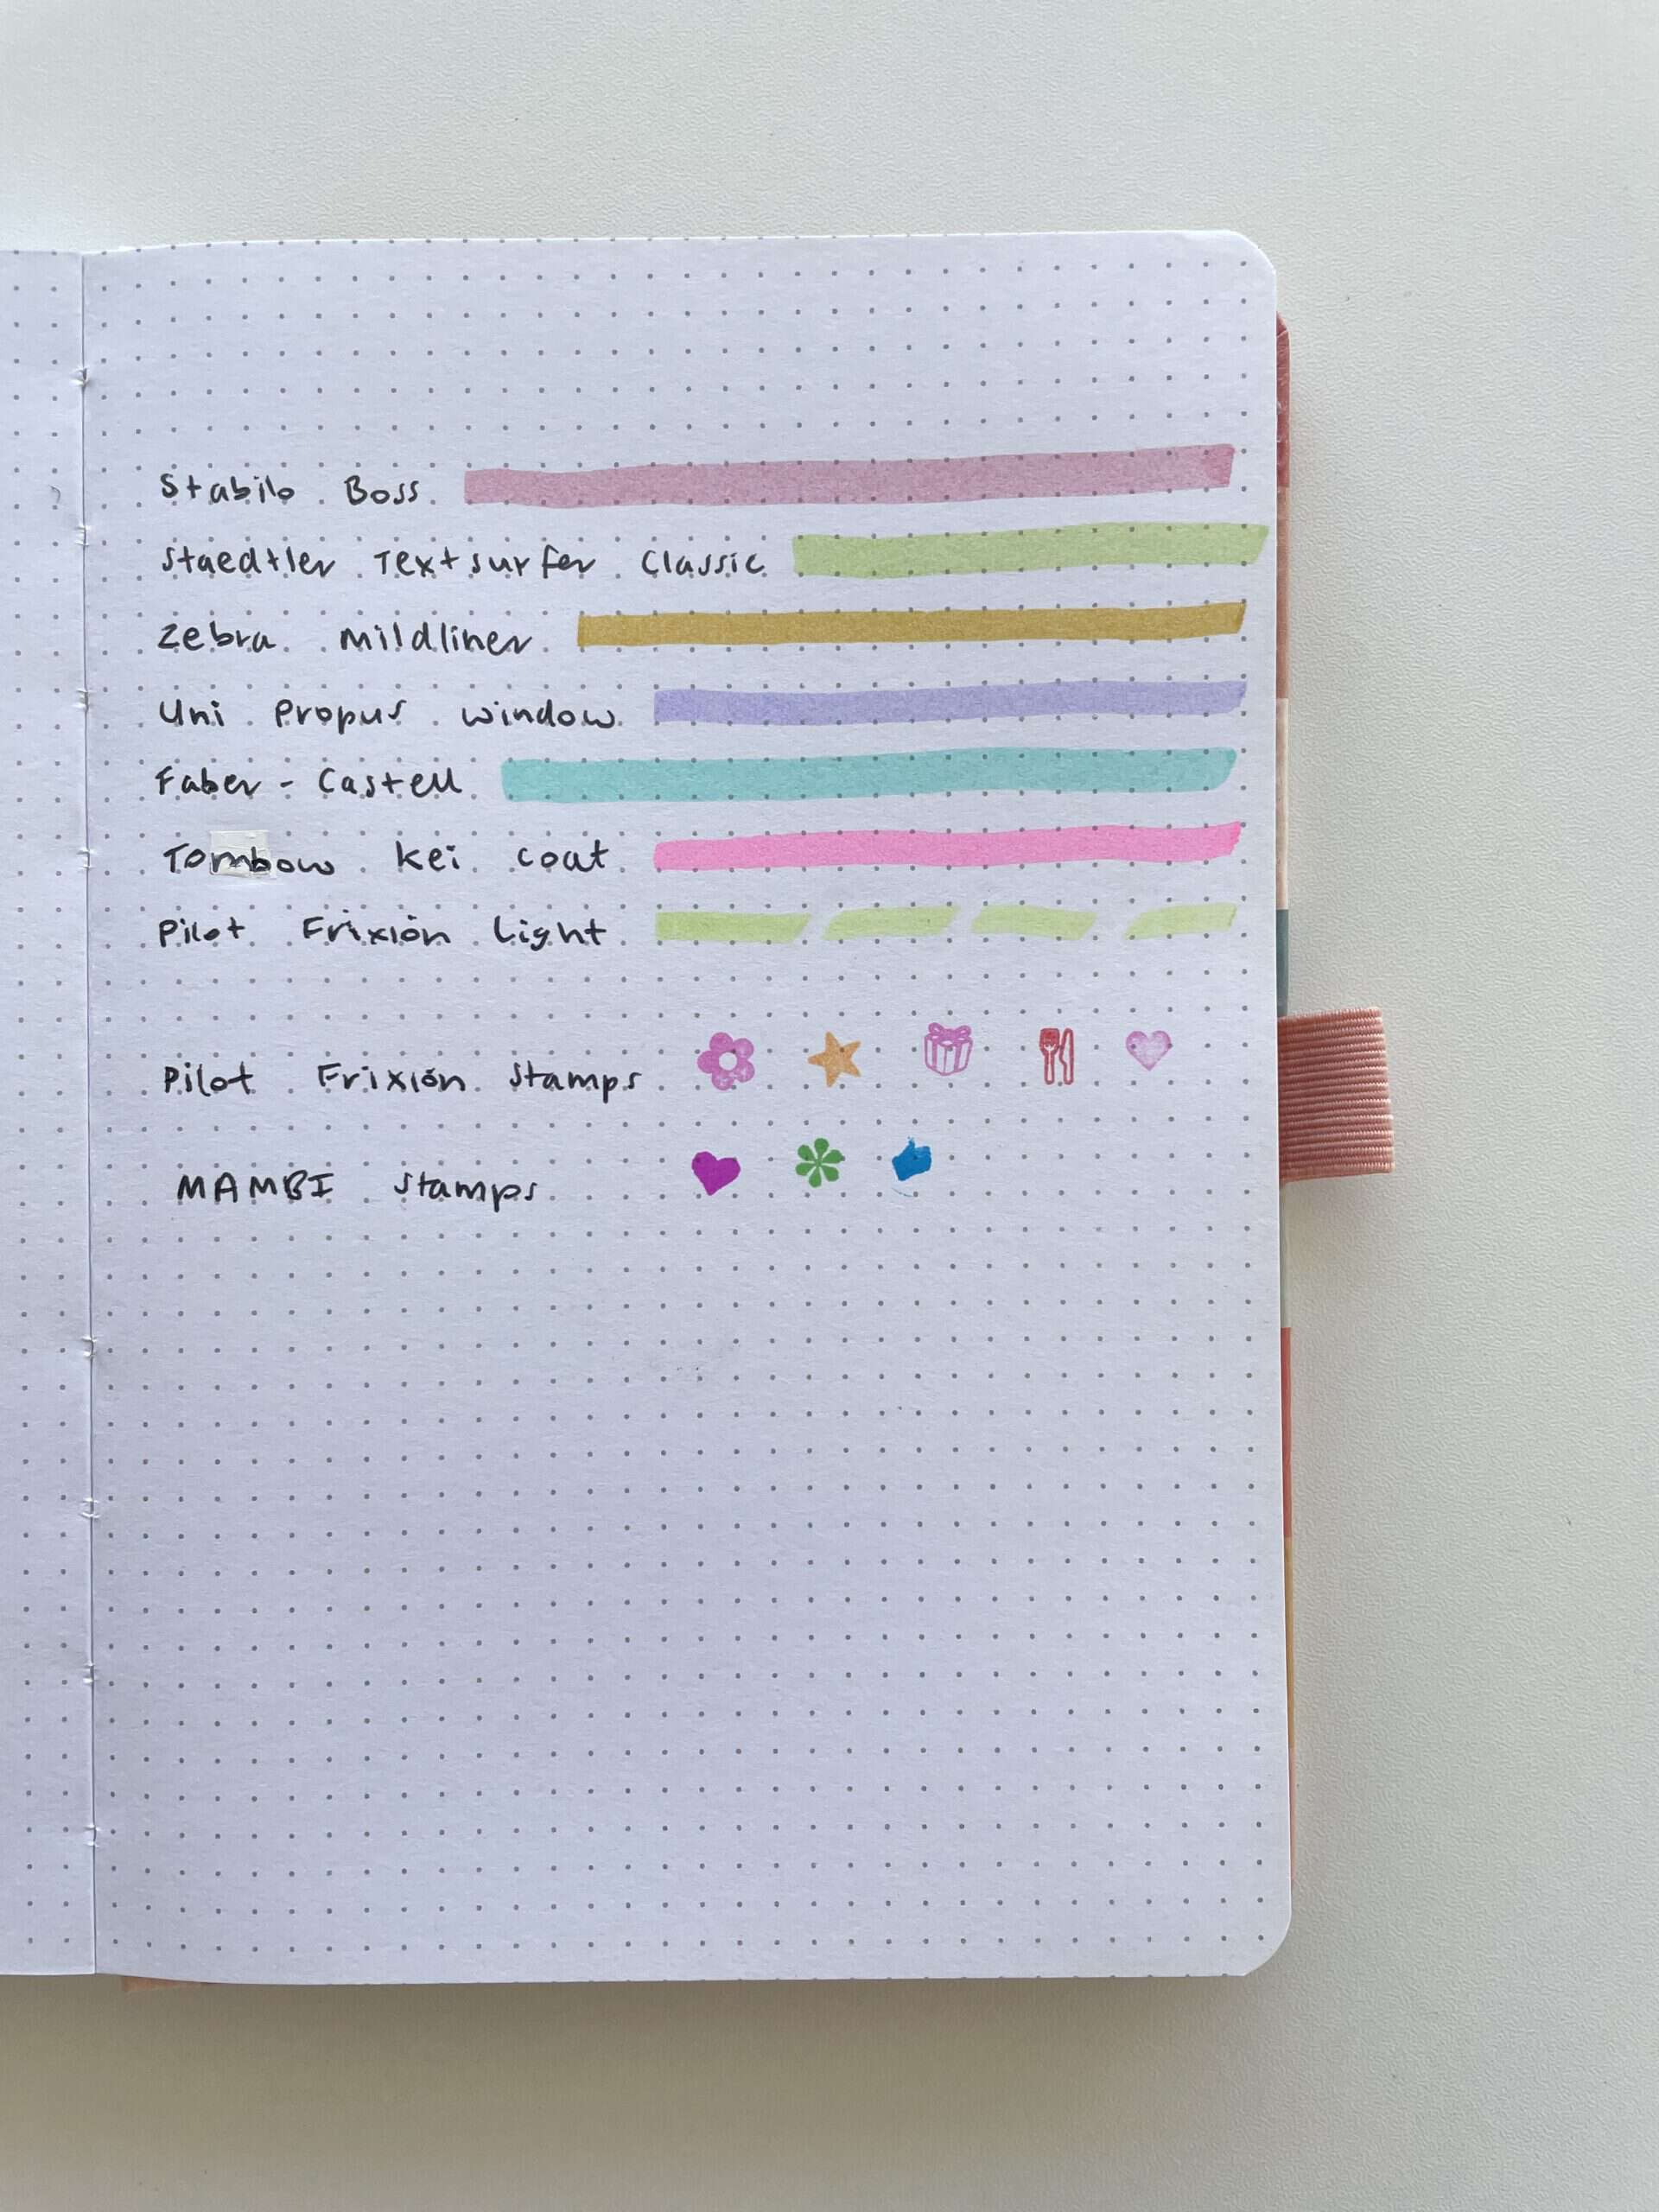 Stabilo Boss
Staedtler Textsurfer Classic
Zebra Mildliner
Uni Propus window
Faber - Castell
Tombow Kei coat
Pilot Frixion Light
Pilot Frixion Stamps
MAMBI Stamps